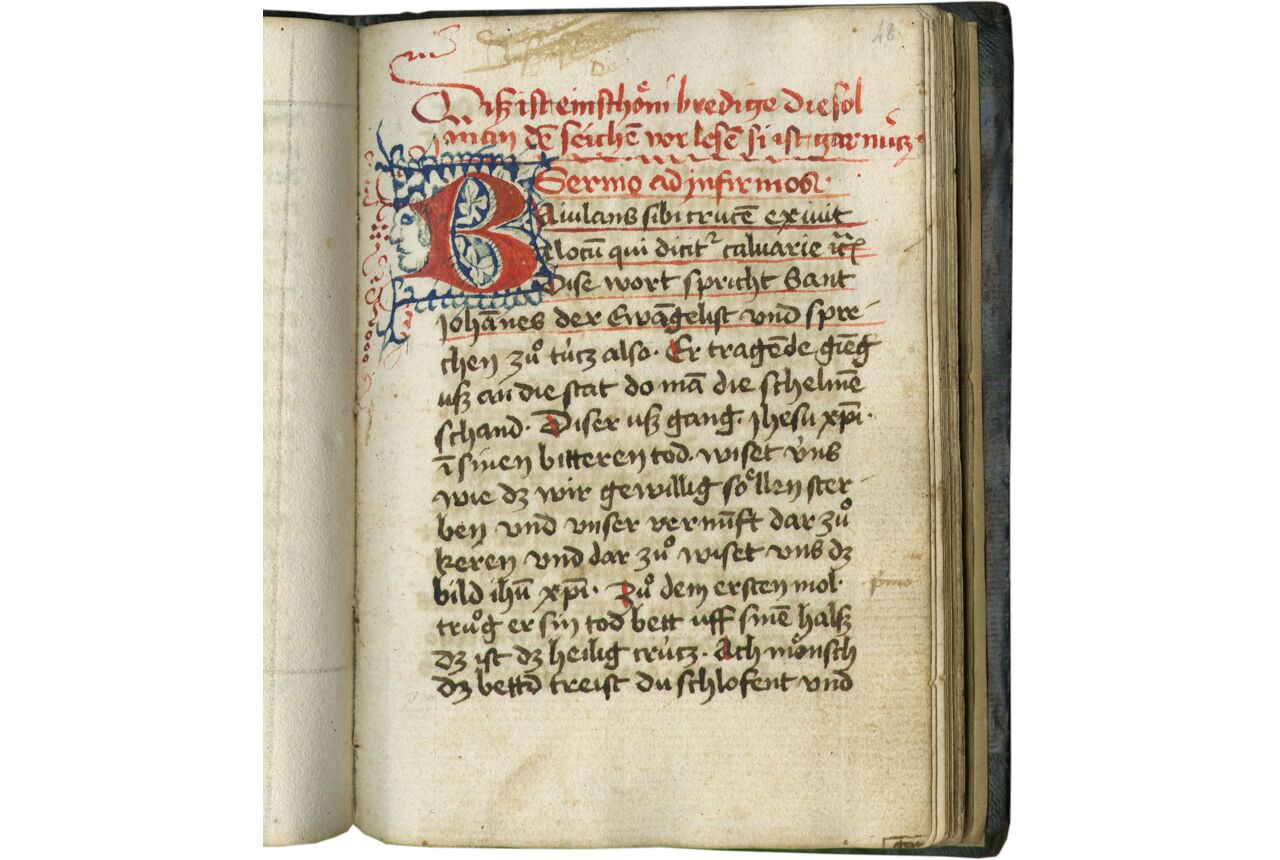 48
Diß ist ein schöni bredige die sol
man dē seichē vor lesē si ist gar nücz
Sermo ad infirmos
BAiulans sibi crucē exiuit
locū qui dicitr caluarie
Dise wort spricht Sant
Johānes der Ewāgelist vnd spre-
chen zů tücz also. Er tragēde giēg
uß an die stat do mā die schelmē
schand. Diser uß gang Jhesu xp̄i.
ī sinen bitteren tod. wiset v́ns
wie dz wir gewillig söllen ster-
ben vnd vnser vernūft dar zů
keren vnd dar zů wiset vns dz
bild ihū xp̄i. Zů dem ersten mol
trůg er sin tod bett uff sinē halß
dz ist dz heilig crúcz. Ach mönsch
dz bettd treist du schlofent vnd
p̄mo